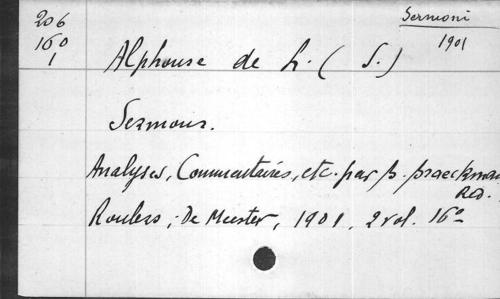 206
160
1
Sermoni
1901
Alphonse de L. (S.)
Sermons.
Analyses, Commentaires, etc. par p.
Red.
Roulers, De Meester, 1901, 2 vol. 16°